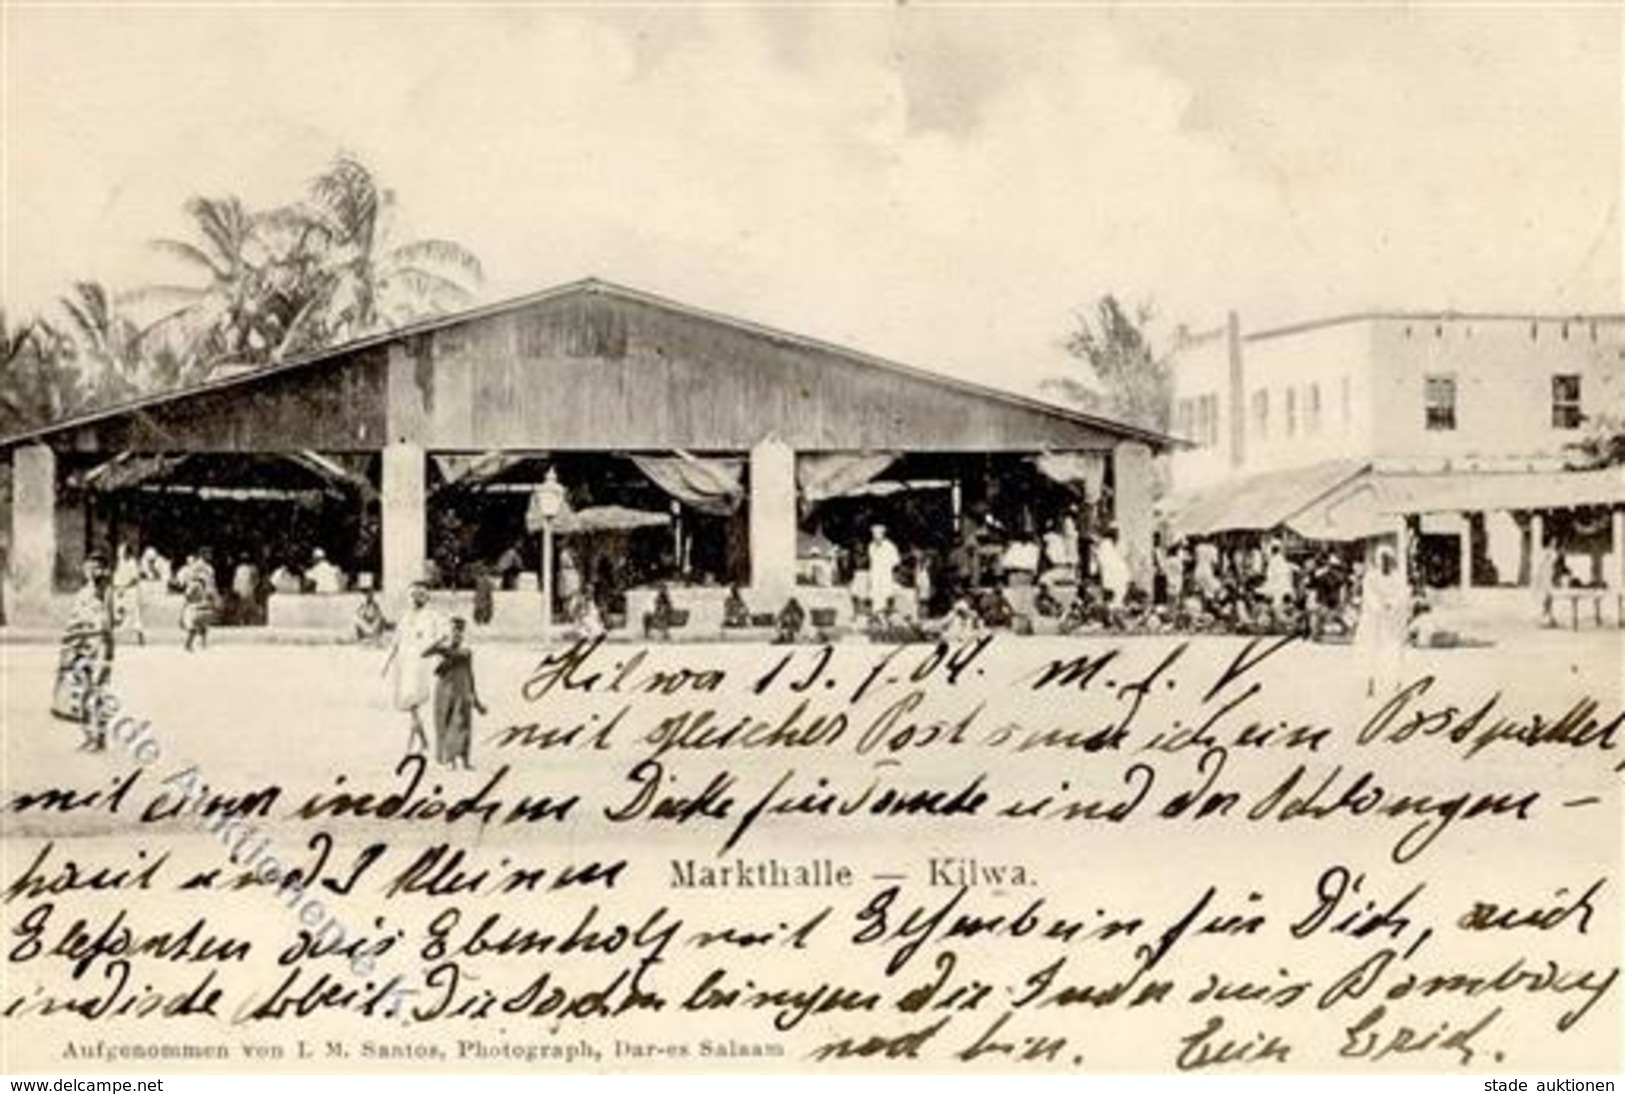 Kilwa 13. 1. 04. M. l. V
mit gleicher Post sende ich ein Postpaket,
mit einer indischen Decke für Tante und der Schlangen-
haut und 1 kleinen
Markthalle — Kilwa.
Elefanten aus Ebenholz mit Elfenbein für Dich, auch
indische Arbeit. Die Sachen bringen die Inder aus Bombay
nach hier. Dein Erich.
Aufgenommen von I. M. Santos, Photograph, Dar-es Salaam
www.delcampe.net
stade auktionen